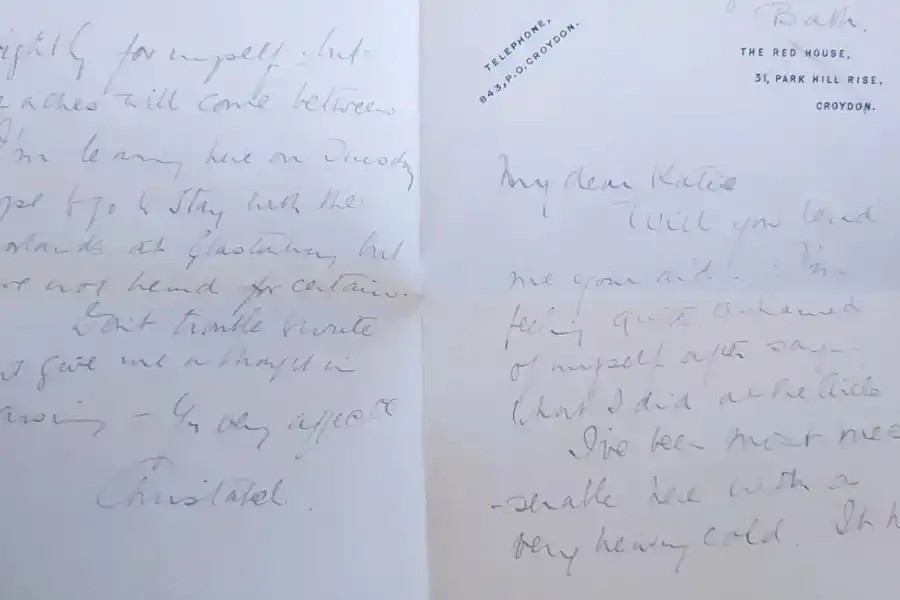 Bath.
TELEPHONE,
843, P.O. CROYDON.
THE RED HOUSE,
31, PARK HILL RISE,
CROYDON.
My dear Katie
Will you lend
me your aid. I'm
feeling quite ashamed
of myself after
what I did at the
I've been most
-serable here with a
very heavy cold. It h
ightly for myself: but
aches will come between
I'm leaving here on Tuesday
to go & stay with the
at Glastonbury but
ve not heard for certain.
Don't trouble to write
give me a thought in
Yr very affecte
Christabel.